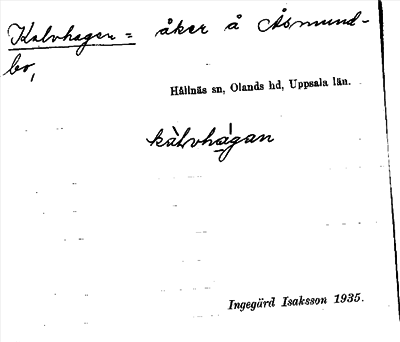 Kalvhagen = åker å Åsmund-
bo,
Hållnäs sn, Olands hd, Uppsala län.
kàlvhágan
Ingegärd Isaksson 1935.